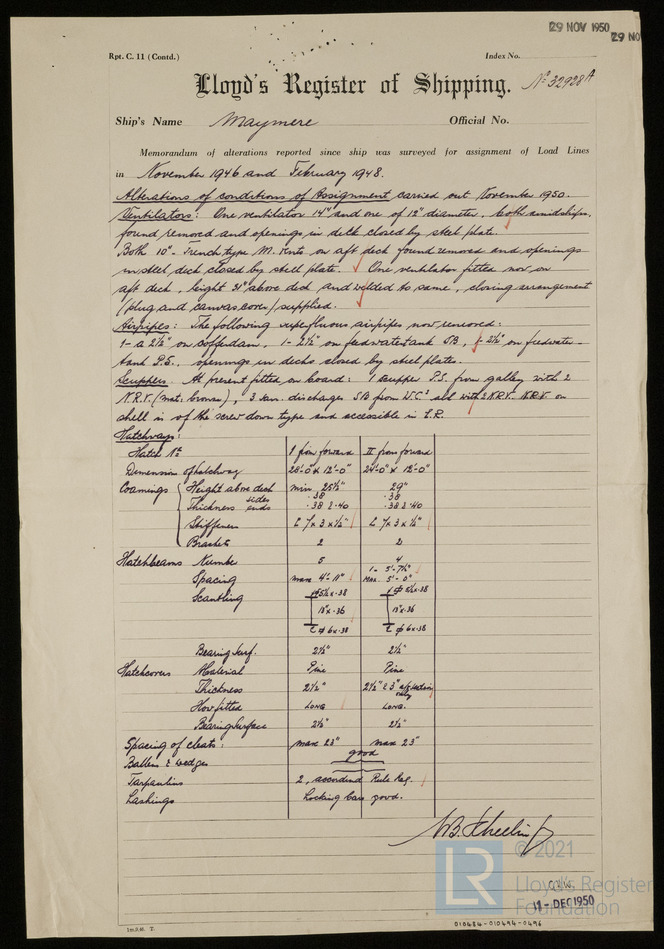 29 NOV 1950
29 NO
Rpt. C. 11 (Contd.) Index No.
Lloyd's Register of Shipping. No 32928A
Ship's Name Maymere Official No.
Memorandum of alterations reported since ship was surveyed for assignment of Load Lines
in November 1946 and February 1948.
Alterations of conditions of Assignment carried out November 1950.
Ventilators: One ventilator 14" and one of 12" diameter, both amidships,
found removed and openings in deck closed by steel plate.
Both 10"- French type M. Vents on aft deck found removed and openings
in steel deck closed by steel plate. One ventilator fitted now on
aft deck, height 31" above deck and welded to same, closing arrangement
(plug and canvas cover) supplied.
Airpipes: The following superfluous airpipes now removed:
1- a 2½" on cofferdam, 1- 2½" on feedwatertank SB, 1- 2½" on feedwater-
tank P.S., openings in decks closed by steel plate.
Scuppers. At present fitted on board: 1 scupper P.S. from galley with 2
N.R.V. (mat. bronze), 3 san. discharges SB from W.C.s with 2 N.R.V. N.R.V. on
shell is of the screw down type and accessible in E.R.
Hatchways:
Hatch No. I from forward II from forward
Dimension of hatchway 28'-0" x 12'-0" 24'-0" x 12'-0"
Coamings Height above deck min. 25½" 29"
Thickness sides .38 .38
ends .38 & .40 .38 & .40
Stiffeners L 7 x 3 x ½" L 7 x 3 x ½"
Brackets 2 2
Hatchbeams Number 5 4
Spacing max 4'- 11" 1- 5'-7½" max. 5'- 0"
Scantling 5½ x .38 5½ x .38
18" x .36 18" x .36
6 x .38 6 x .38
Bearing Surf. 2½" 2½"
Hatchcovers Material Pine Pine
Thickness 2½" 2½" & 3" only
How fitted LONG LONG.
Bearing Surface 2½" 2½"
Spacing of cleats: max 23" max 23"
Battens & wedges good
Tarpaulins 2, accordind Rule Req.
Lashings Locking bars good.
© 2021
LR
Lloyd's Register
Foundation
11 - DEC 1950
1m.9.48. T.
010484-010494-0496